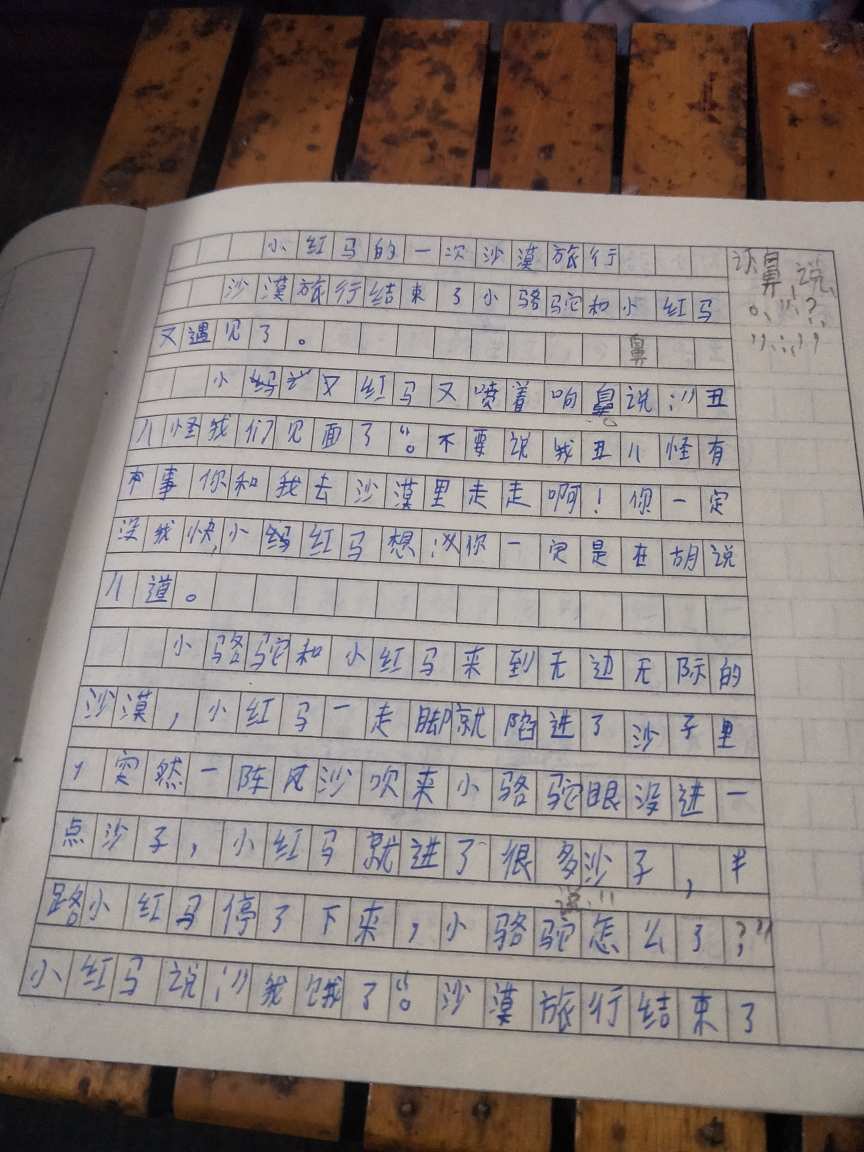 小红马的一次沙漠旅行
沙漠旅行结束了小骆驼和小红马
又遇见了。
鼻
小红马又喷着响鼻说:"丑
八怪我们见面了"。不要说我丑八怪有
本事你和我去沙漠里走走啊!你一定
没我快,小红马想:"你一定是在胡说
八道。
小骆驼和小红马来到无边无际的
沙漠,小红马一走脚就陷进了沙子里
,突然一阵风沙吹来小骆驼眼没进一
点沙子,小红马就进了很多沙子,半
说:"
路小红马停了下来,小骆驼怎么了?"
小红马说:"我饿了"。沙漠旅行结束了
鼻 说、